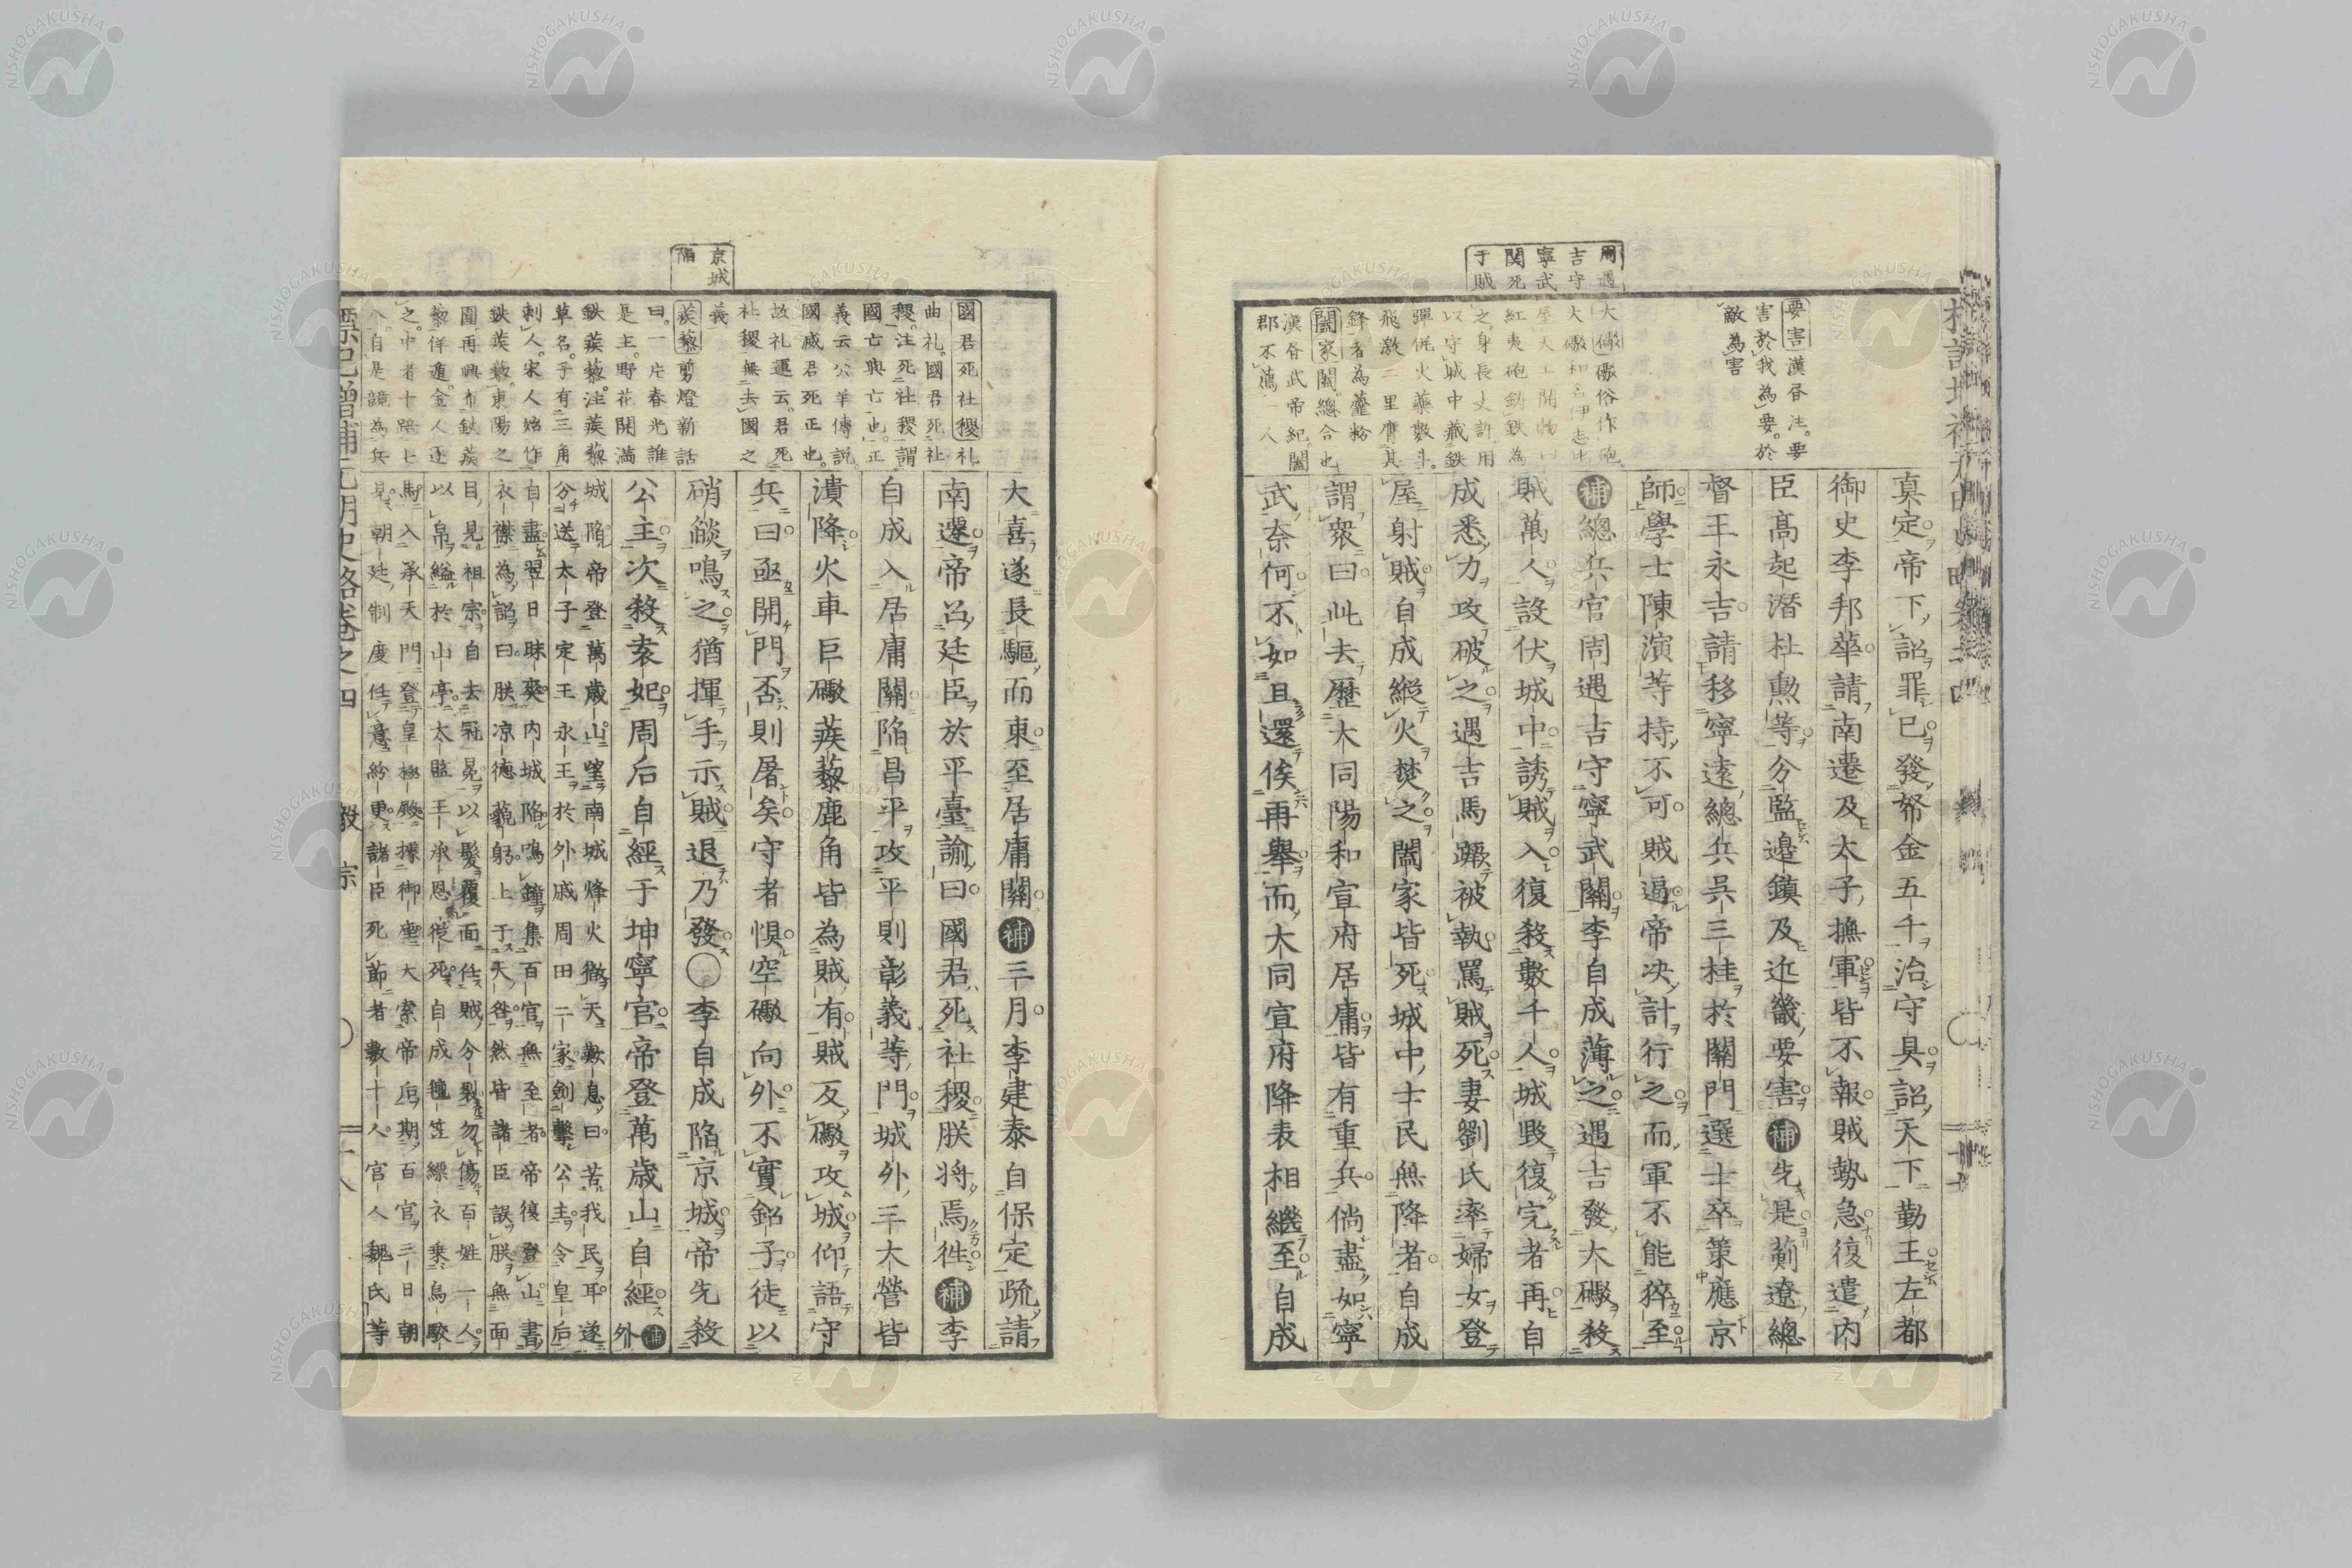 真定帝下詔罪已發帑金五千治守具詔天下勤王左都
御史李邦華請南遷及太子撫軍皆不報賊勢急復遣内
臣高起潜杜勲等分監邊鎮及近畿要害補先是薊遼總
督王永吉請移寧遠總兵呉三桂於關門選士卒策應京
師學士陳演等持不可賊逼帝决計行之而軍不能猝至
補總兵官周遇吉守寧武關李自成薄之遇吉發大礮殺
賊萬人設伏城中誘賊入復殺數千人城毀復完者再自
成悉力攻破之遇吉馬蹶被執罵賊死妻劉氏率婦女登
屋射賊自成縱火焚之闔家皆死城中士民無降者自成
謂衆曰此去歴大同陽和宣府居庸皆有重兵倘盡如寧
武奈何不如且還俟再舉而大同宣府降表相繼至自成
要害漢書注要
害於我為要於
敵為害
周遇
吉守
寧武
関死
于賊
闔家闔總合也
漢書武帝紀闔
郡不薦一人
大喜遂長驅而東至居庸關補三月李建泰自保定疏請
南遷帝召廷臣於平臺諭曰國君死社稷朕将焉徃補李
自成入居庸關陷昌平攻平則彰義等門城外三大營皆
潰降火車巨礮蒺藜鹿角皆為賊有賊反礮攻城仰語守
兵曰亟開門否則屠矣守者惧空礮向外不實鉛子徒以
硝燄鳴之猶揮手示賊退乃發〇李自成陷京城帝先殺
公主次殺袁妃周后自經于坤寧宮帝登萬歳山自經補外
城陷帝登萬歳山望南城烽火徹天歎息曰苦我民耳遂
分送太子定王永王於外戚周田二家劍擊公主令皇后
自盡翌日昧爽内城陷鳴鐘集百官無至者帝復登山書
衣襟為詔曰朕凉德藐躬上于天咎然皆諸臣誤朕無面
目見祖宗自去冠冕以髮覆面任賊分裂勿傷百姓一人
以帛縊於山亭太監王承恩從死自成氊笠縹衣乗烏駮
馬入承天門登皇極殿據御座大索帝后期百官三日朝
見朝廷制度任意紛更諸臣死節者數十人宮人魏氏等
京城
陥
國君死社稷礼
曲礼國君死社
稷注死社稷謂
國亡與亡也正
義云公羊傳説
國滅君死正也
故礼運云君死
社稷無去國之
義
蒺藜剪燈新話
曰一片春光誰
是主野花開滿
鉄蒺藜注蒺藜
草名子有三角
刺人宋人始作
鉄蒺藜東陽之
圍再興布鉄蒺
藜佯遁金人逐
之中者十踣七
標記增補元明史略巻之四
NISHOGAKUSHA